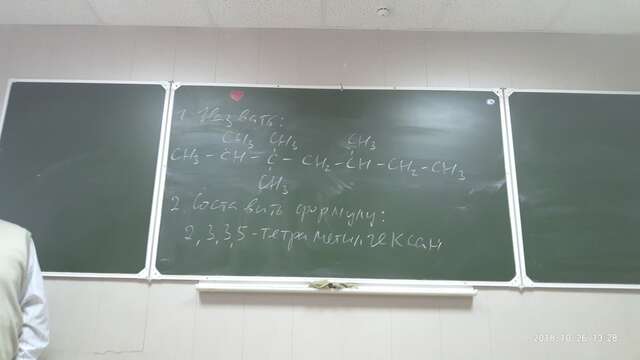 1. Назвать:
CH3 CH3 CH3
CH3 - CH - C - CH2 - CH - CH2 - CH3
CH3
2. Составить формулу:
2,3,3,5-тетраметилгексан
2018.10.26 10:28